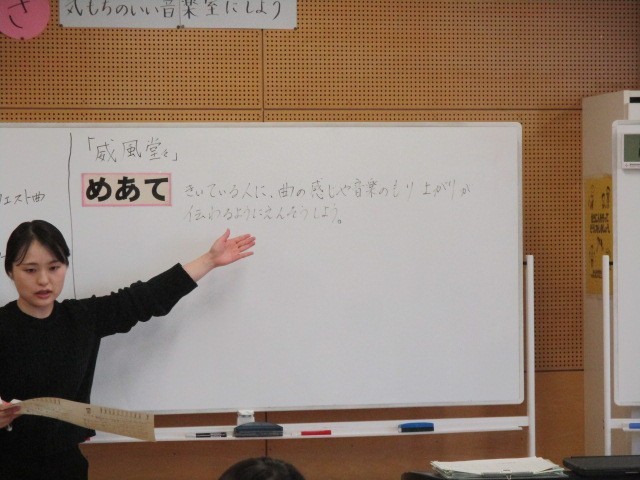 さ
気もちのいい音楽室にしよう
「威風堂々」
めあて
きいている人に、曲の感じや音楽のもり上がりが
伝わるようにえんそうしよう。
エスト曲